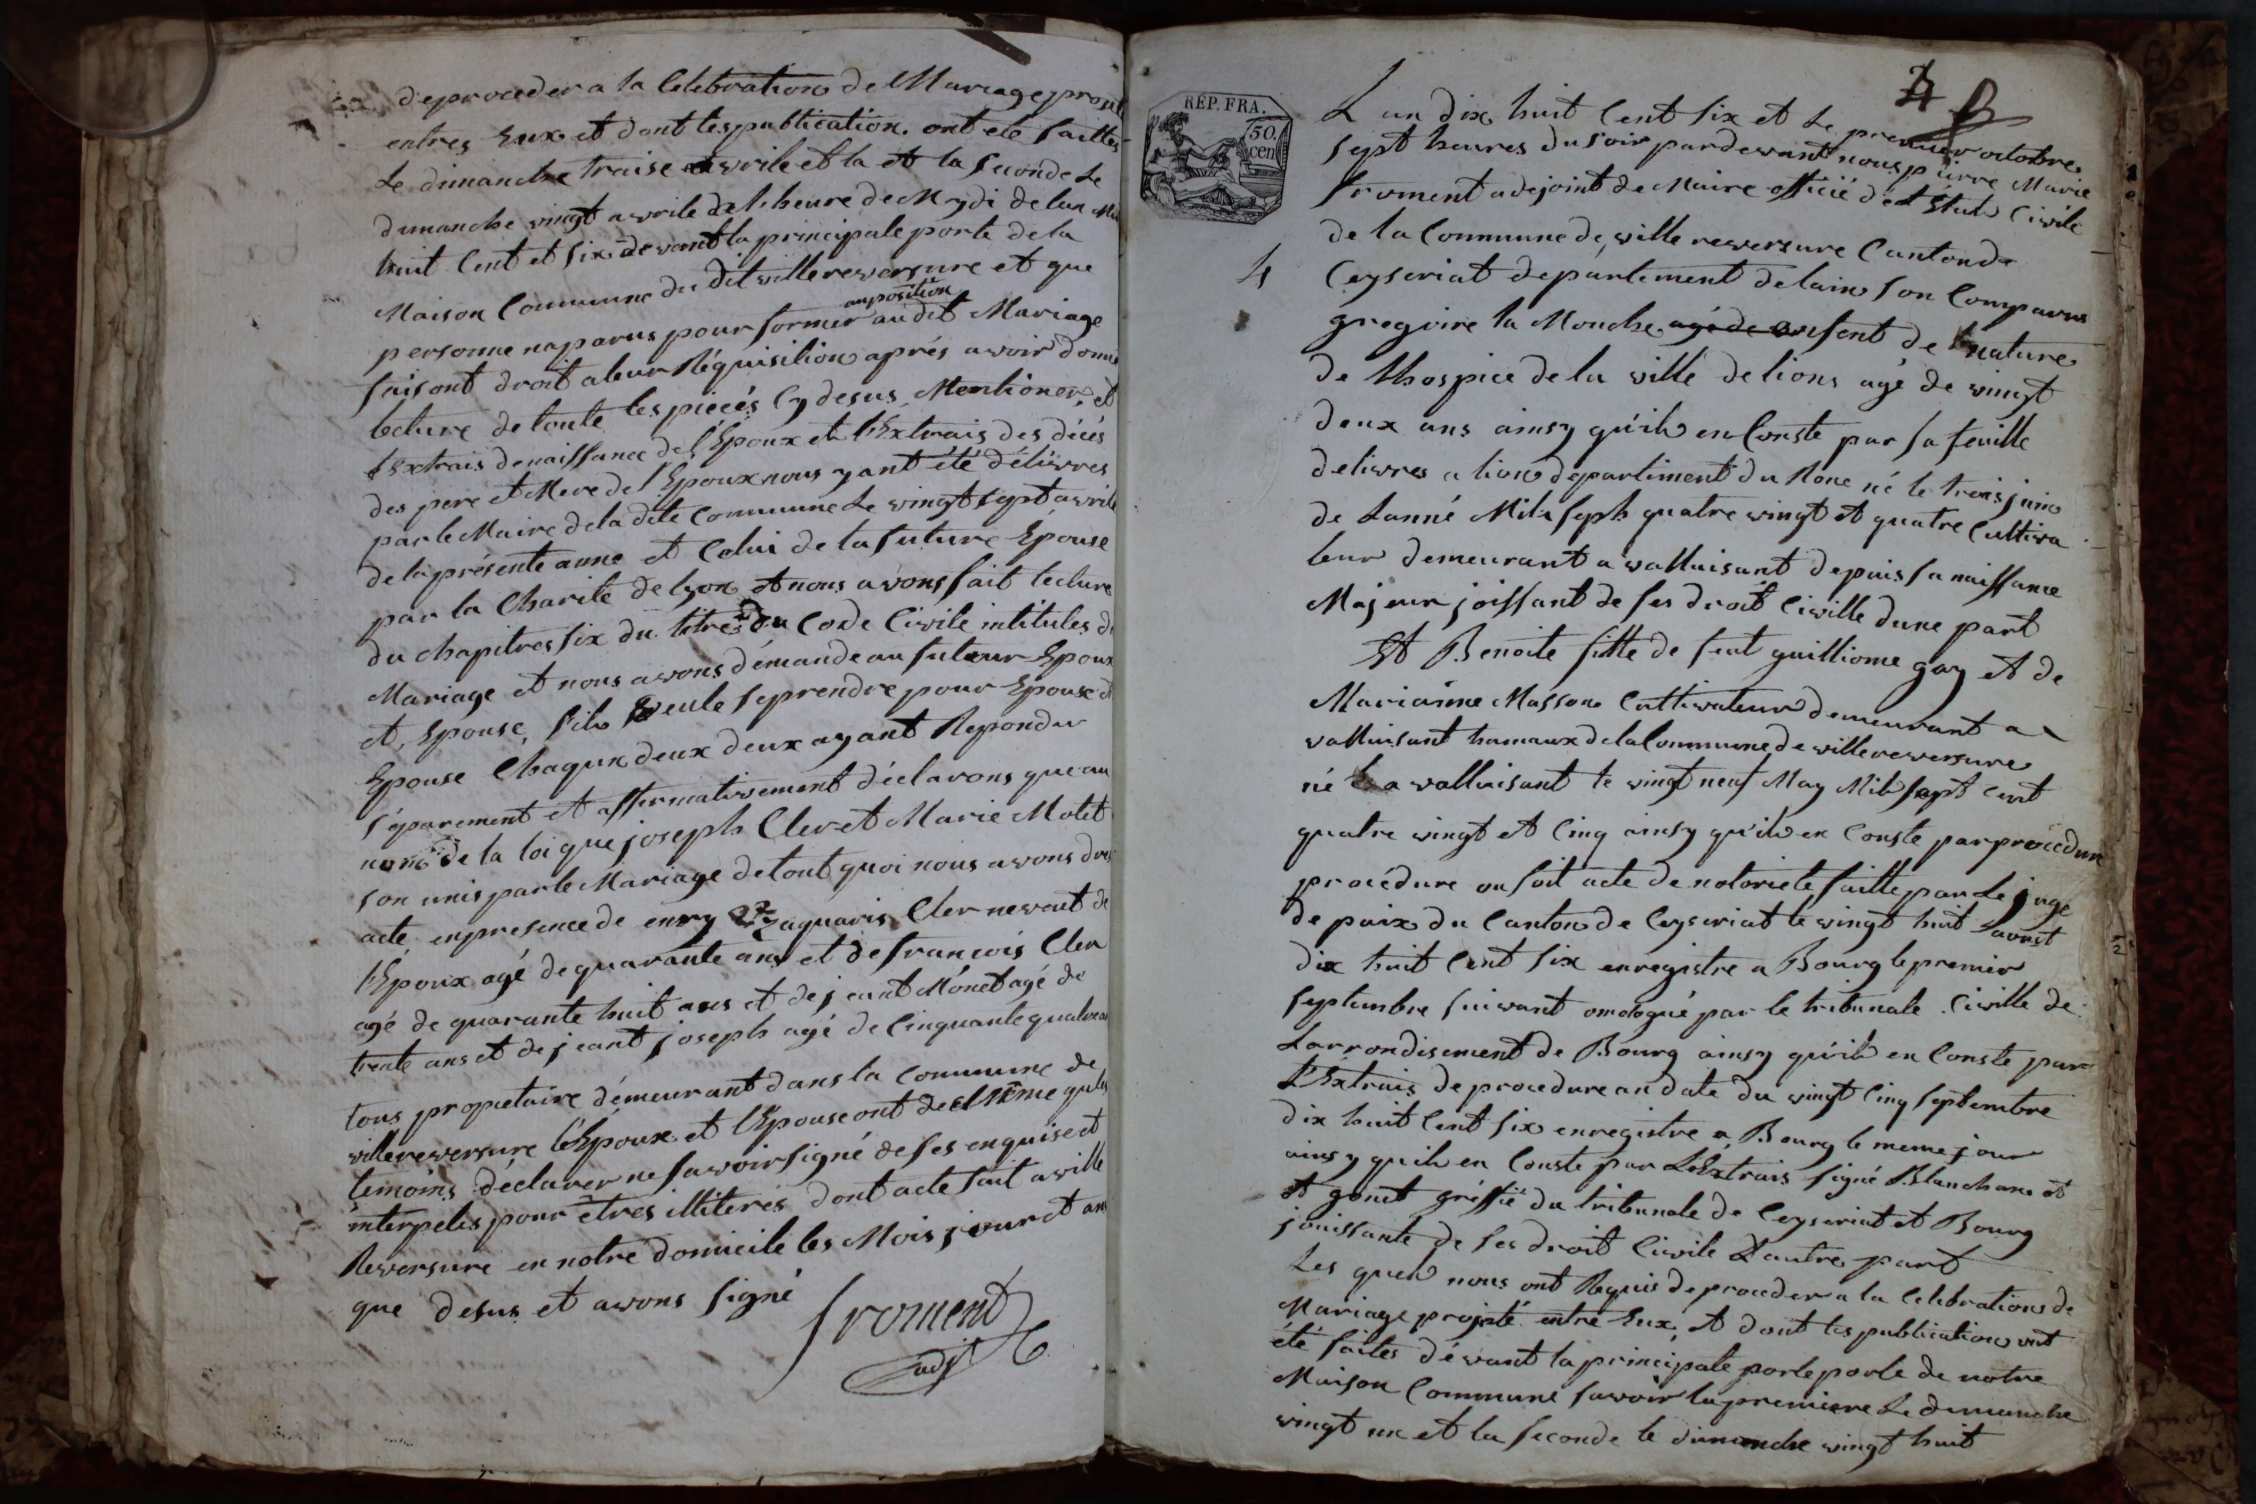 de proceder a la Celebration de Mariage projt
entres Eux et dont les publication ont été faittes
Le dimanche traise avrile et la et la seconde Le
dimanche vingt avrile de l'heure de Mydi de lan Mil
huit Cent et six devant la principale porte de la
Maison Commune du dit villereversure et que
personne naparus pour former auposition audit Mariage
faisant droit a leur Réquisition aprés avoir donné
lecture de toute les pieces Cy desus Mentioner, et
l'Extrais de naissance de l'Epoux et l'Extrais des décés
des pere et Mere de l'Epoux nous yant été délivres
par le Maire de la dite Commune Le vingt sept avrile
de la présente anne et Celui de la future Epouse
par la Charité de lyon et nous avons fait lecture
du chapitres six du titre du Code Civile intitules du
Mariage et nous avons démande au futeur Epoux
et Epouse, s'ils veule se prendre pour Epouse et
Epouse Chaqun deux deux ayant Repondu
séparement et affirmativement déclarons que au
nom de la loi que joseph Cler et Marie Motet
son unis par le Mariage de tout quoi nous avons dres
acte en presence de enry Zaquaris Cler neveut de
l'Epoux agé de quarante ans et de francois Cler
agé de quarante huit ans et de jeant Mónet agé de
trente ans et de jeant joseph agé de Cinquante quatre an
tous proprietaire démeurant dans la commune de
villereversure l'Epoux et l'Epouse ont de Même que les
temoins déclarer ne savoir signé de ses enquise et
interpelés pour êtres illiterés dont acte fait a ville
Reversure en notre domicile les Mois jour et an
que desus et avons signé
froment
adjt
RÉP. FRA.
50.
cen
4
L'an dix huit Cent six et Le premier octobre
sept heures du soir pardevant nous pierre Marie
froment adejoint de Maire officié de l'état Civile
de la Commune de villereversure Canton de
4
Ceyseriat departement de lain son Comparus
gregoire la Mouche agé de enfent de nature
de l'hospice de la ville de lions agé de vingt
deux ans ainsy qu'il en Conste par sa feuille
delivres a lion departiment du Rone né le trois juin
de Lanné Mil Sept quatre vingt et quatre Cultiva
teur demeurant a valluisant depuis sa naissance
Majeur joissant de ses droit Civille dune part
Et Benoite fille de feut guilliome gay et de
Marianne Masson Cultivateur demeurant a
valluisant hamaux de la Commune de villereversure
né a valluisant le vingt neuf May Mil sept cent
quatre vingt et Cinq ainsy qu'il en Conste par procedure
procédure ou soit acte de notoriete faitte par Le juge
de paix du Canton de Ceyseriat le vingt huit aoust
dix huit Cent six enregistre a Bourg le premier
septembre suivant omologué par le tribunale Civille de
Larrondisement de Bourg ainsy qu'il en Conste par
L'Extrais de procedure an date du vingt Cinq septembre
dix huit Cent six enregistre a Bourg le meme jour
ainsy qu'il en Conste par L'Extrais signé Blanchane et
et gonet gréffié du tribunale de Ceyseriat et Bourg
jouissante de ses droit Civile D'autre part
Les quels nous ont Requis de proceder a la Celebrations de
Mariage projeté entre Eux, et dont les publication ont
été faites dévant la principale porte porte de notre
Maison Commune savoir la premiere Le dimanche
vingt un et la seconde le dimanche vingt huit